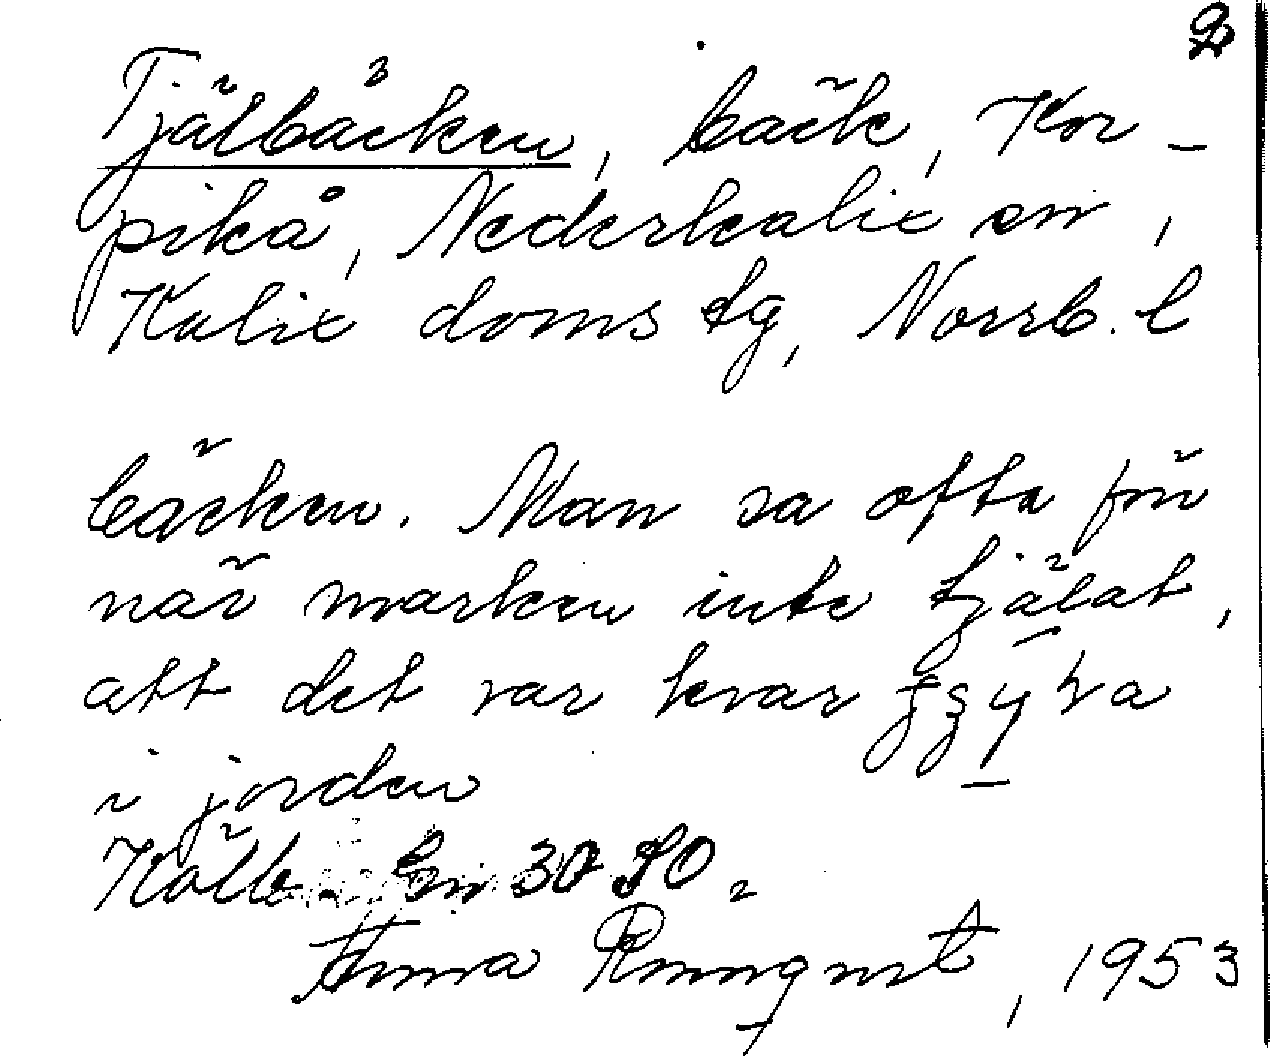 2
Tjälbäcken, bäck, Kor-
pikå, Nederkalix sn,
Kalix doms tg, Norrb. l
bäcken. Man sa ofta förr
när marken inte tjälat,
att det var kvar
i jorden
Anna Rönnqvist, 1953